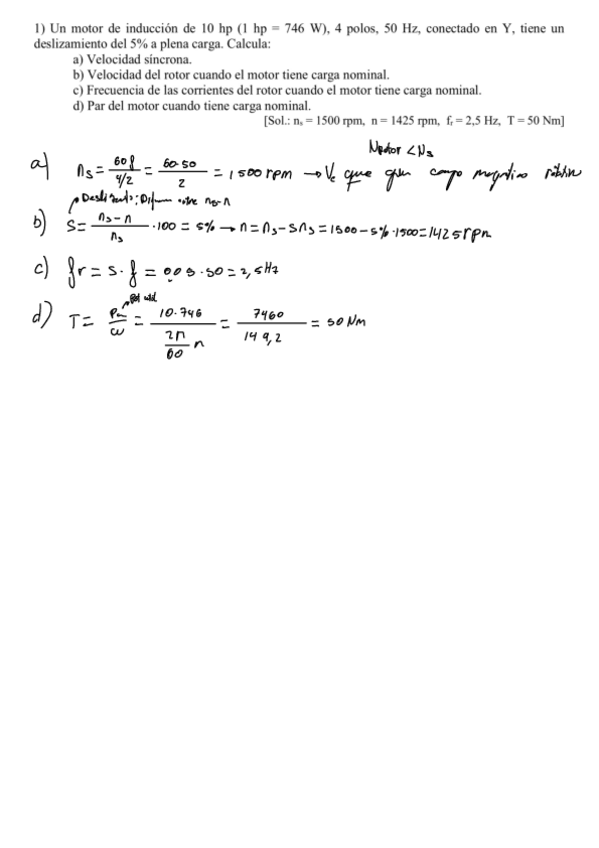 1) Un motor de inducción de 10 hp (1 hp = 746 W), 4 polos, 50 Hz, conectado en Y, tiene un
deslizamiento del 5% a plena carga. Calcula:
a) Velocidad síncrona.
b) Velocidad del rotor cuando el motor tiene carga nominal.
c) Frecuencia de las corrientes del rotor cuando el motor tiene carga nominal.
d) Par del motor cuando tiene carga nominal.
[Sol.: nₛ = 1500 rpm, n = 1425 rpm, fᵣ = 2,5 Hz, T = 50 Nm]
< Ns
a) ns = 60 f / 4/2 = 60·50 / 2 = 1500 rpm → que campo magnético
ns-n
b) S = ns-n / ns · 100 = 5% → n = ns - sns = 1500 - 5% · 1500 = 1425 rpm
c) fr = s · f = 0,05 · 50 = 2,5Hz
d) T = Pu / ω = 10·746 / 2π/60 n = 7460 / 149,2 = 50 Nm